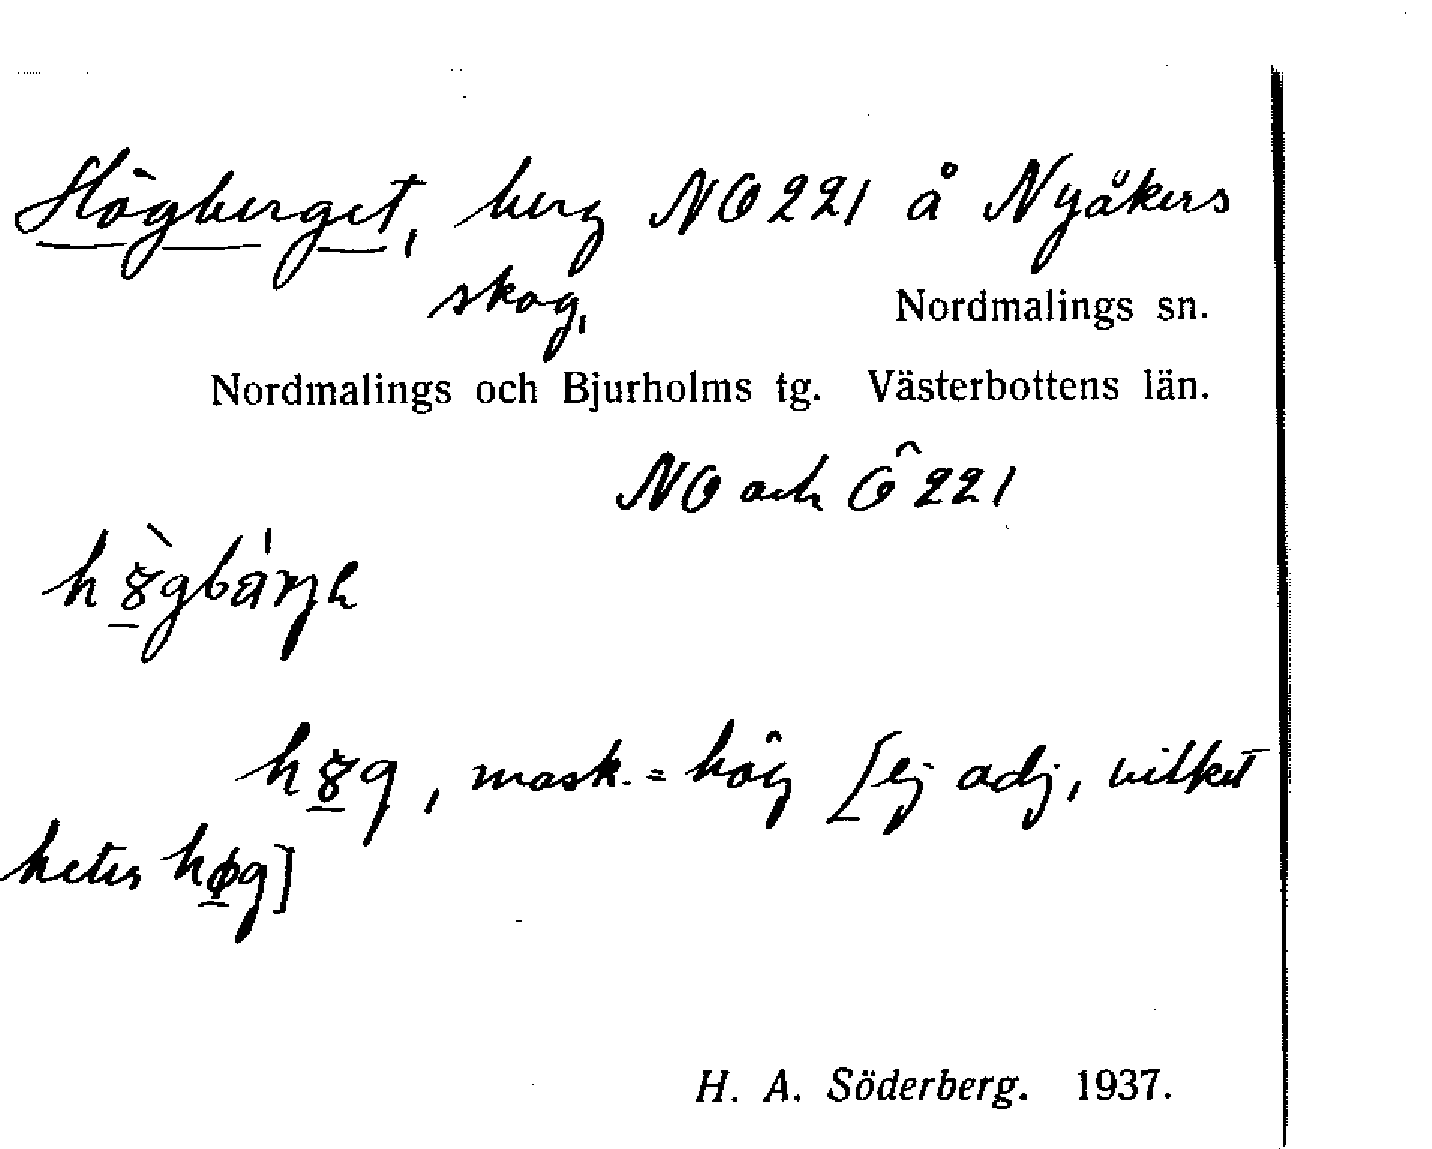 Högberget, berg NO 221 å Nyåkers
skog,
Nordmalings sn.
Nordmalings och Bjurholms tg. Västerbottens län.
NO och Ö 221
hȣ̀gbárjı̨
hȣg, mask. = hög [ej adj, vilket
heter høg]
H. A. Söderberg. 1937.